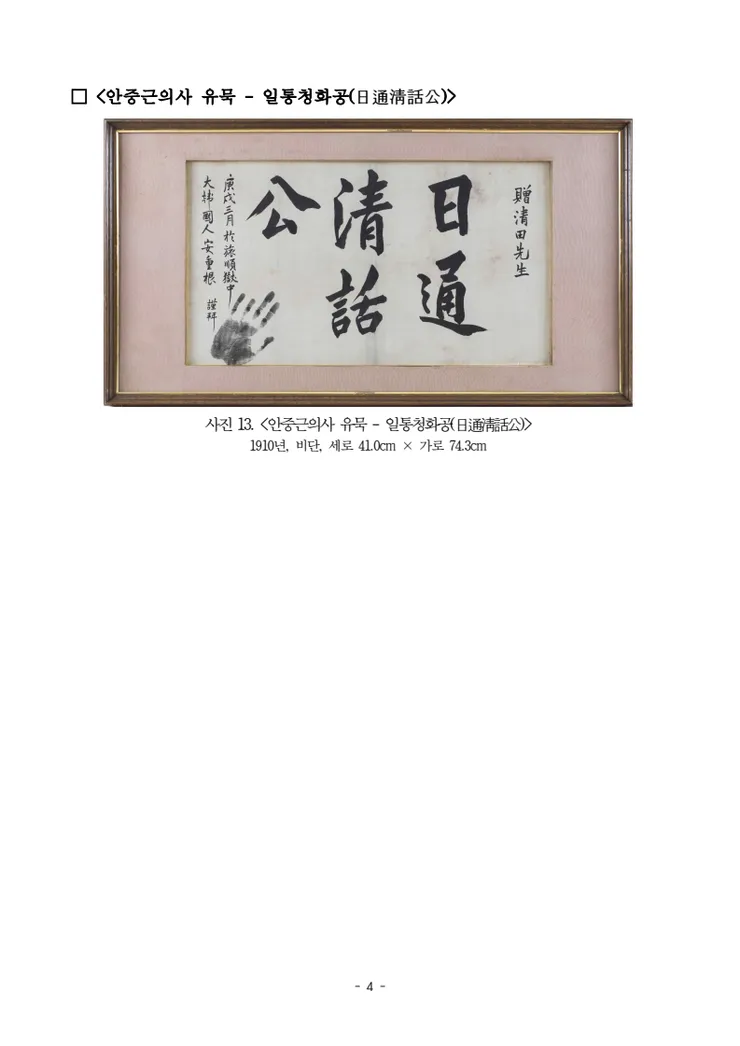 □ <안중근의사 유묵 - 일통청화공(日通淸話公)>
贈清田先生
日通
清話
公
庚戌三月 於旅順獄中
大韓國人 安重根 謹拜
사진 13. <안중근의사 유묵 - 일통청화공(日通淸話公)>
1910년, 비단, 세로 41.0cm × 가로 74.3cm
- 4 -